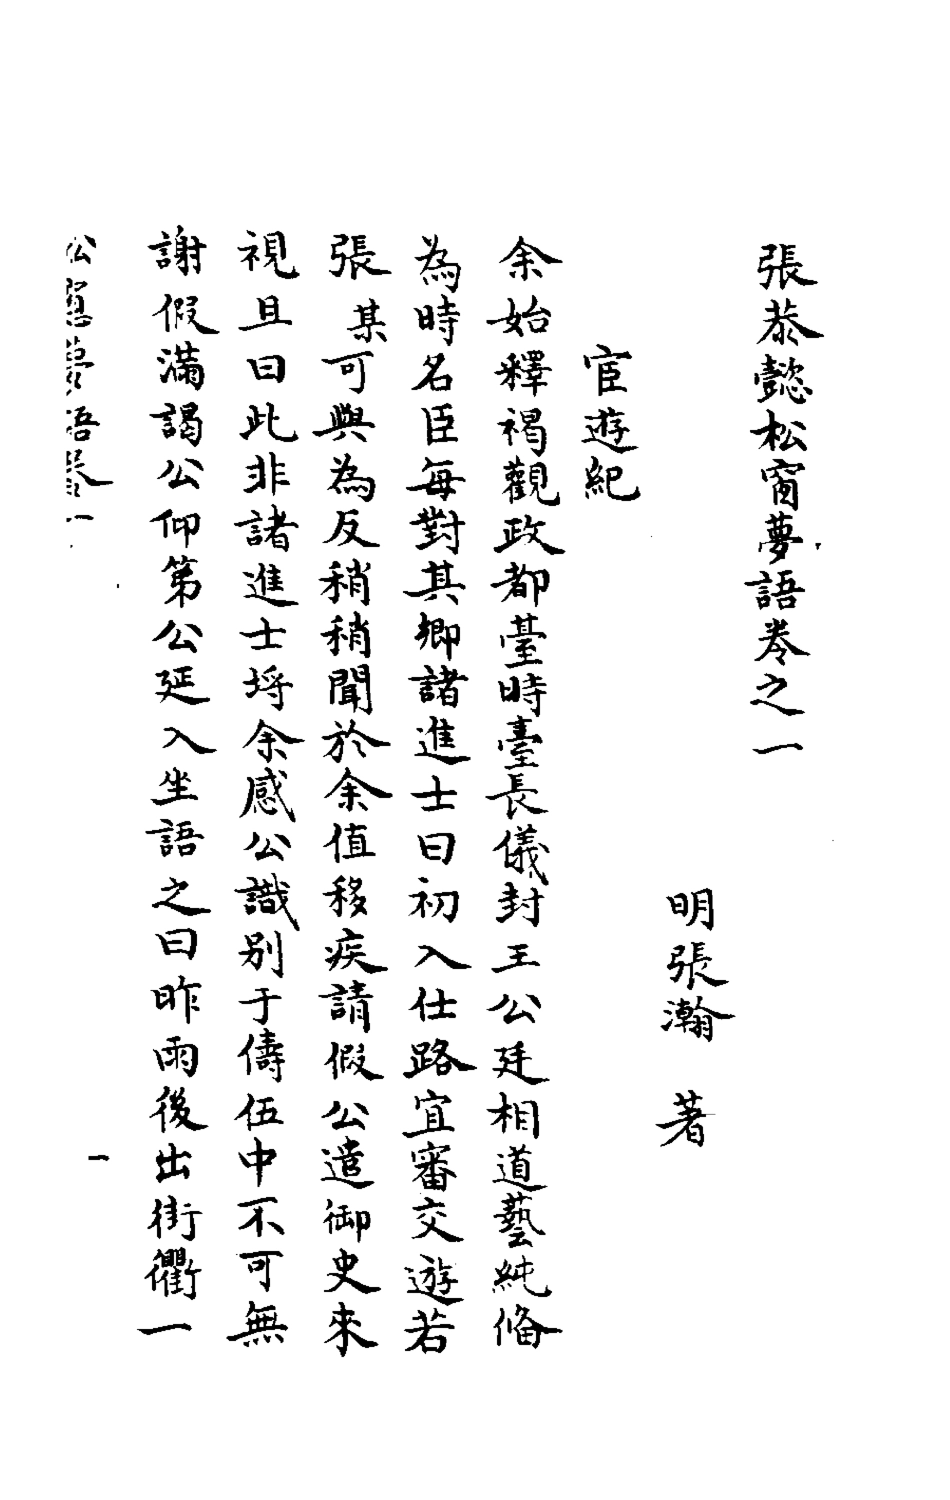 張恭懿松窗夢語卷之一
明張瀚 著
宦遊紀
余始釋褐觀政都臺時臺長儀封王公廷相道藝純備
為時名臣每對其鄉諸進士曰初入仕路宜審交遊若
張某可與為友稍稍聞於余值移疾請假公遣御史來
視且曰此非諸進士埒余感公識別于儔伍中不可無
謝假滿謁公仰第公延入坐語之曰昨雨後出街衢一
松窗夢語卷一
一